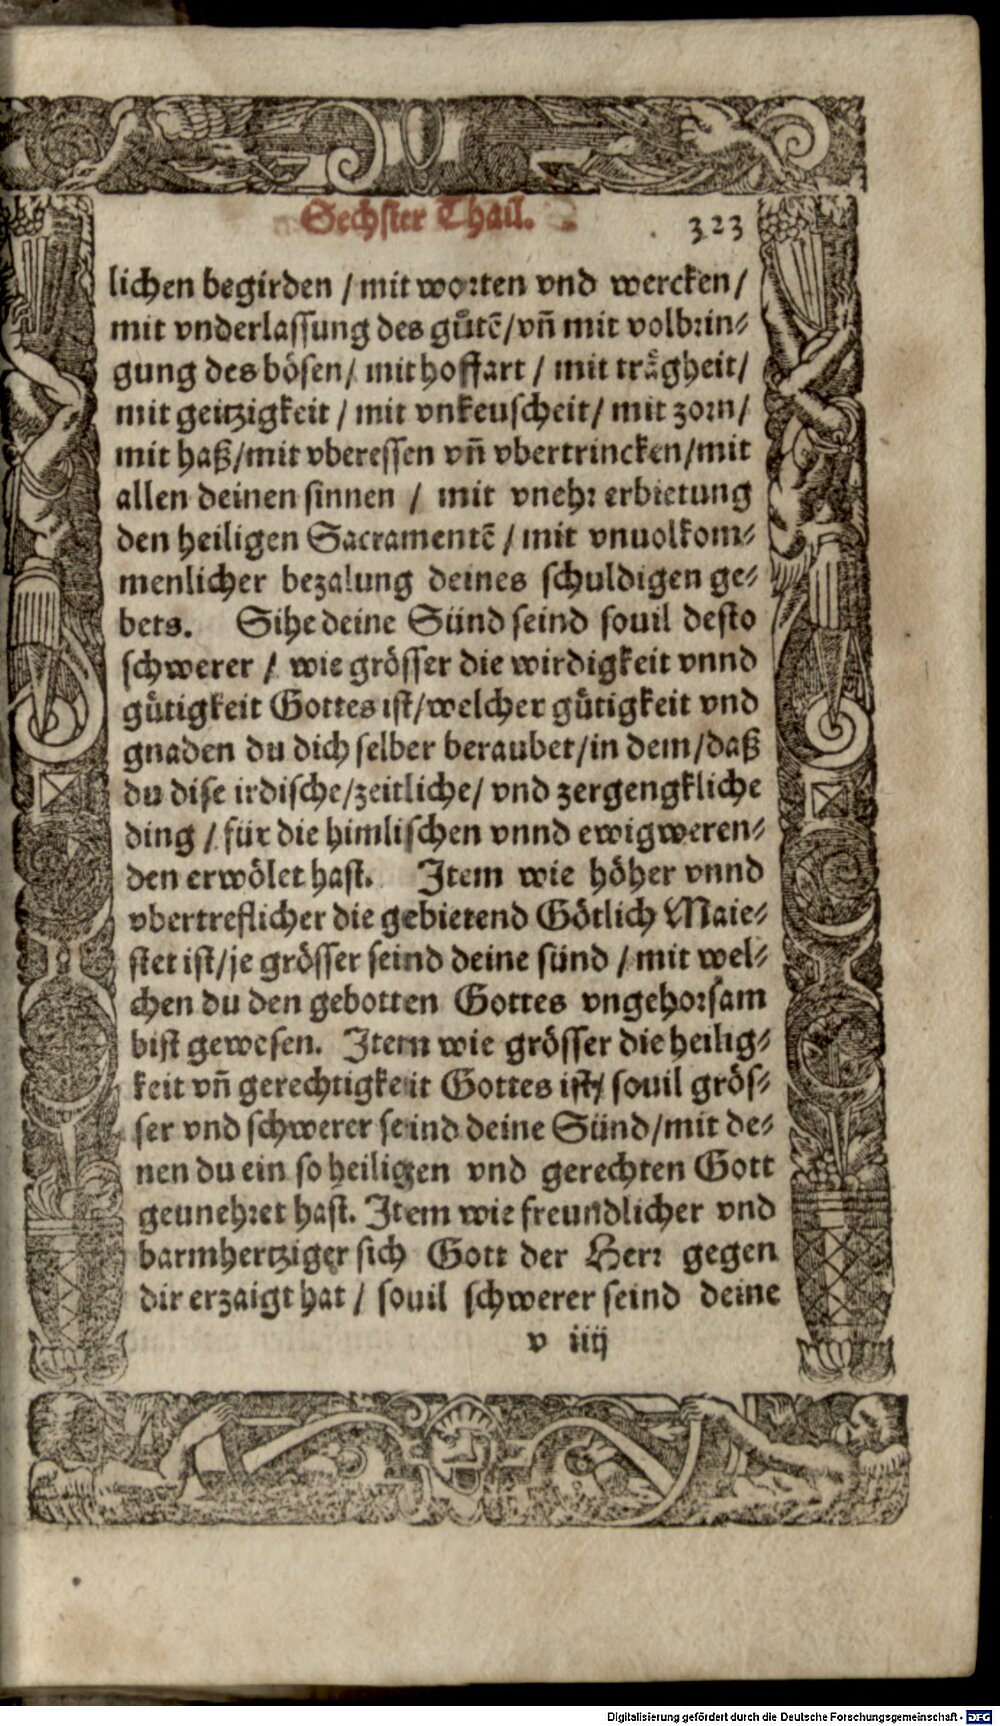 Sechster Thail. 323
lichen begirden / mit worten vnd wercken/
mit vnderlassung des gůtē/vn̄ mit volbrin⸗
gung des bösen/ mit hoffart / mit trägheit/
mit geitzigkeit / mit vnkeuscheit/ mit zorn/
mit haß/mit vberessen vn̄ vbertrincken/mit
allen deinen sinnen / mit vnehr erbietung
den heiligen Sacramentē / mit vnuolkom⸗
menlicher bezalung deines schuldigen ge⸗
bets. Sihe deine Sünd seind souil desto
schwerer / wie grösser die wirdigkeit vnnd
gůtigkeit Gottes ist/welcher gůtigkeit vnd
gnaden du dich selber beraubet/in dem/daß
du dise irdische/zeitliche/ vnd zergengkliche
ding / für die himlischen vnnd ewigweren⸗
den erwölet hast. Item wie höher vnnd
vbertreflicher die gebietend Götlich Maie⸗
stet ist/je grösser seind deine sünd / mit wel⸗
chen du den gebotten Gottes vngehorsam
bist gewesen. Item wie grösser die heilig⸗
keit vn̄ gerechtigkeit Gottes ist/ souil grös⸗
ser vnd schwerer seind deine Sünd/mit de⸗
nen du ein so heiligen vnd gerechten Gott
geunehret hast. Item wie freundlicher vnd
barmhertziger sich Gott der Herr gegen
dir erzaigt hat / souil schwerer seind deine
v iiij
Digitalisierung gefördert durch die Deutsche Forschungsgemeinschaft - DFG